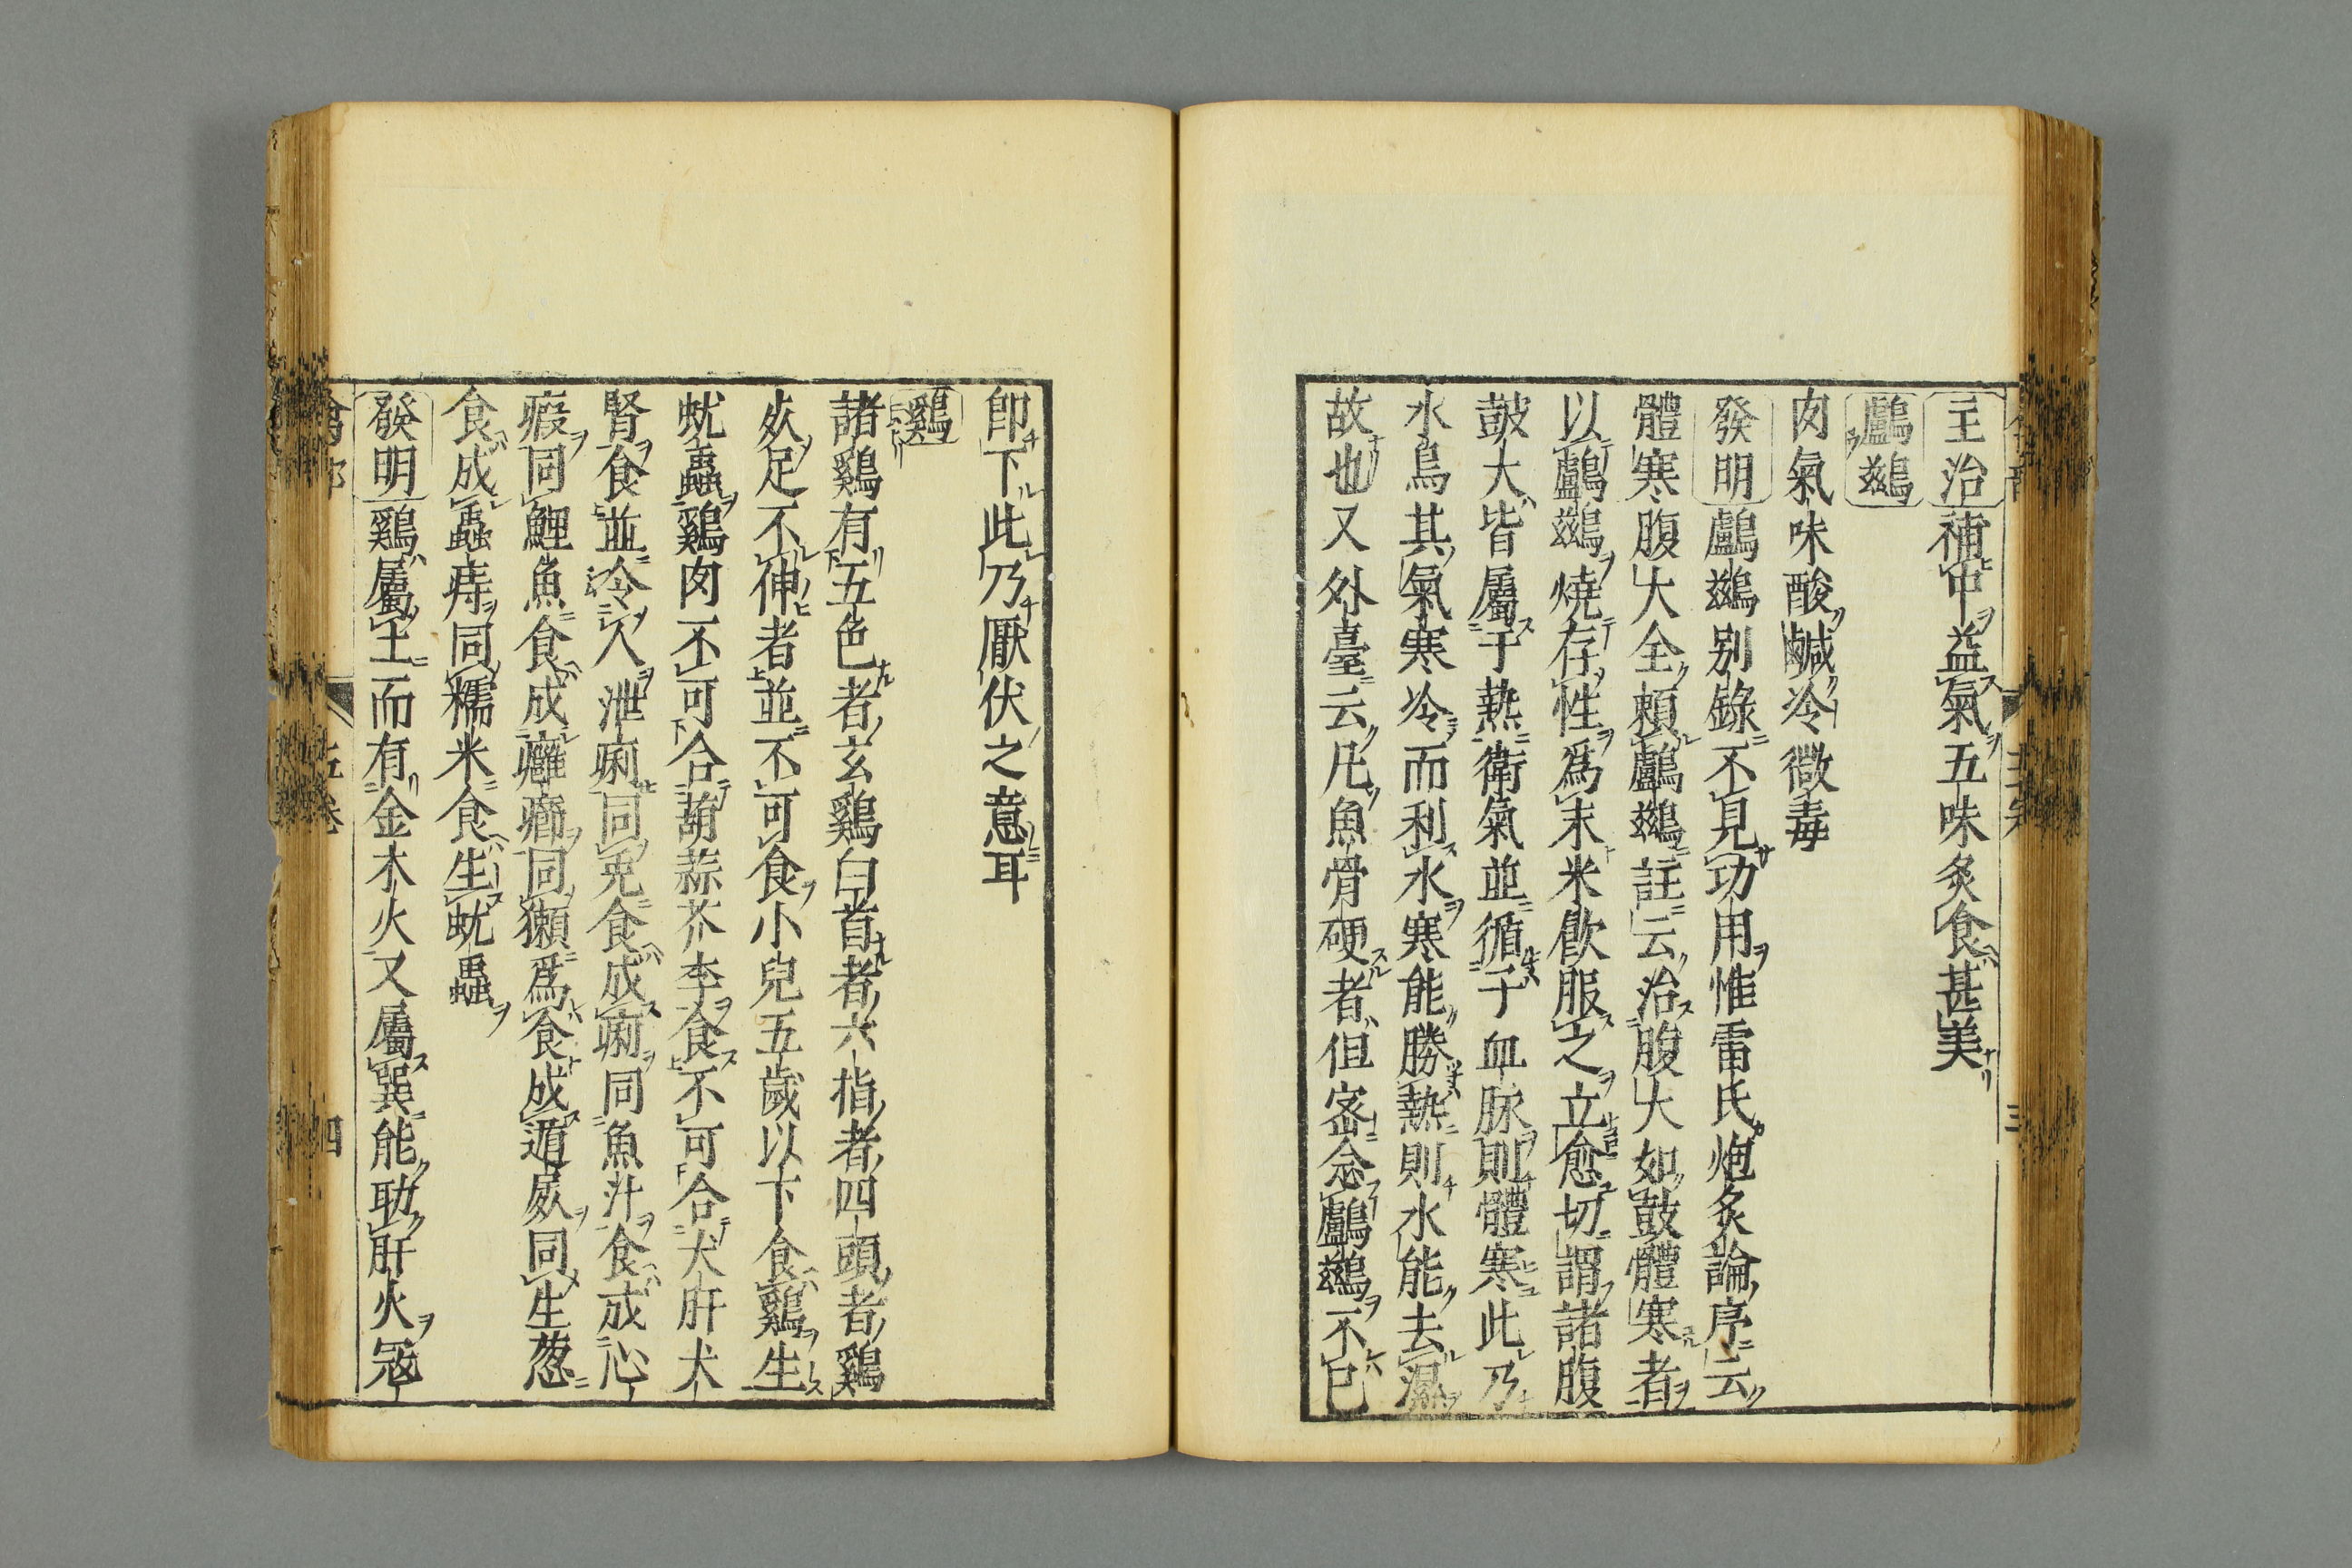 主治補中益氣五味炙食甚美
鸕鷀
肉氣味酸鹹冷微毒
發明鸕鷀別錄不見功用惟雷氏炮炙論序云
體寒腹大全賴鸕鷀註云治腹大如鼓體寒者
以鸕鷀燒存性爲末米飮服之立愈切謂諸腹
鼓大皆屬于熱衛氣並循于血脉則體寒此乃
水鳥其氣寒冷而利水寒能勝熱則水能去濕
故也又外臺云凡魚骨硬者但密念鸕鷀不已
卽下此乃厭伏之意耳
鷄
諸鷄有五色者玄鷄白首者六指者四頭者鷄
死足不伸者並不可食小兒五歲以下食鷄生
蚘蟲鷄肉不可合葫蒜芥李食不可合犬肝犬
腎食並令人泄痢同兎食成痢同魚汁食成心
瘕同鯉魚食成癰癤同獺爲食成遁尸同生葱
食成蟲痔同糯米食生蚘蟲
發明鷄屬土而有金木火又屬巽能助肝火冦